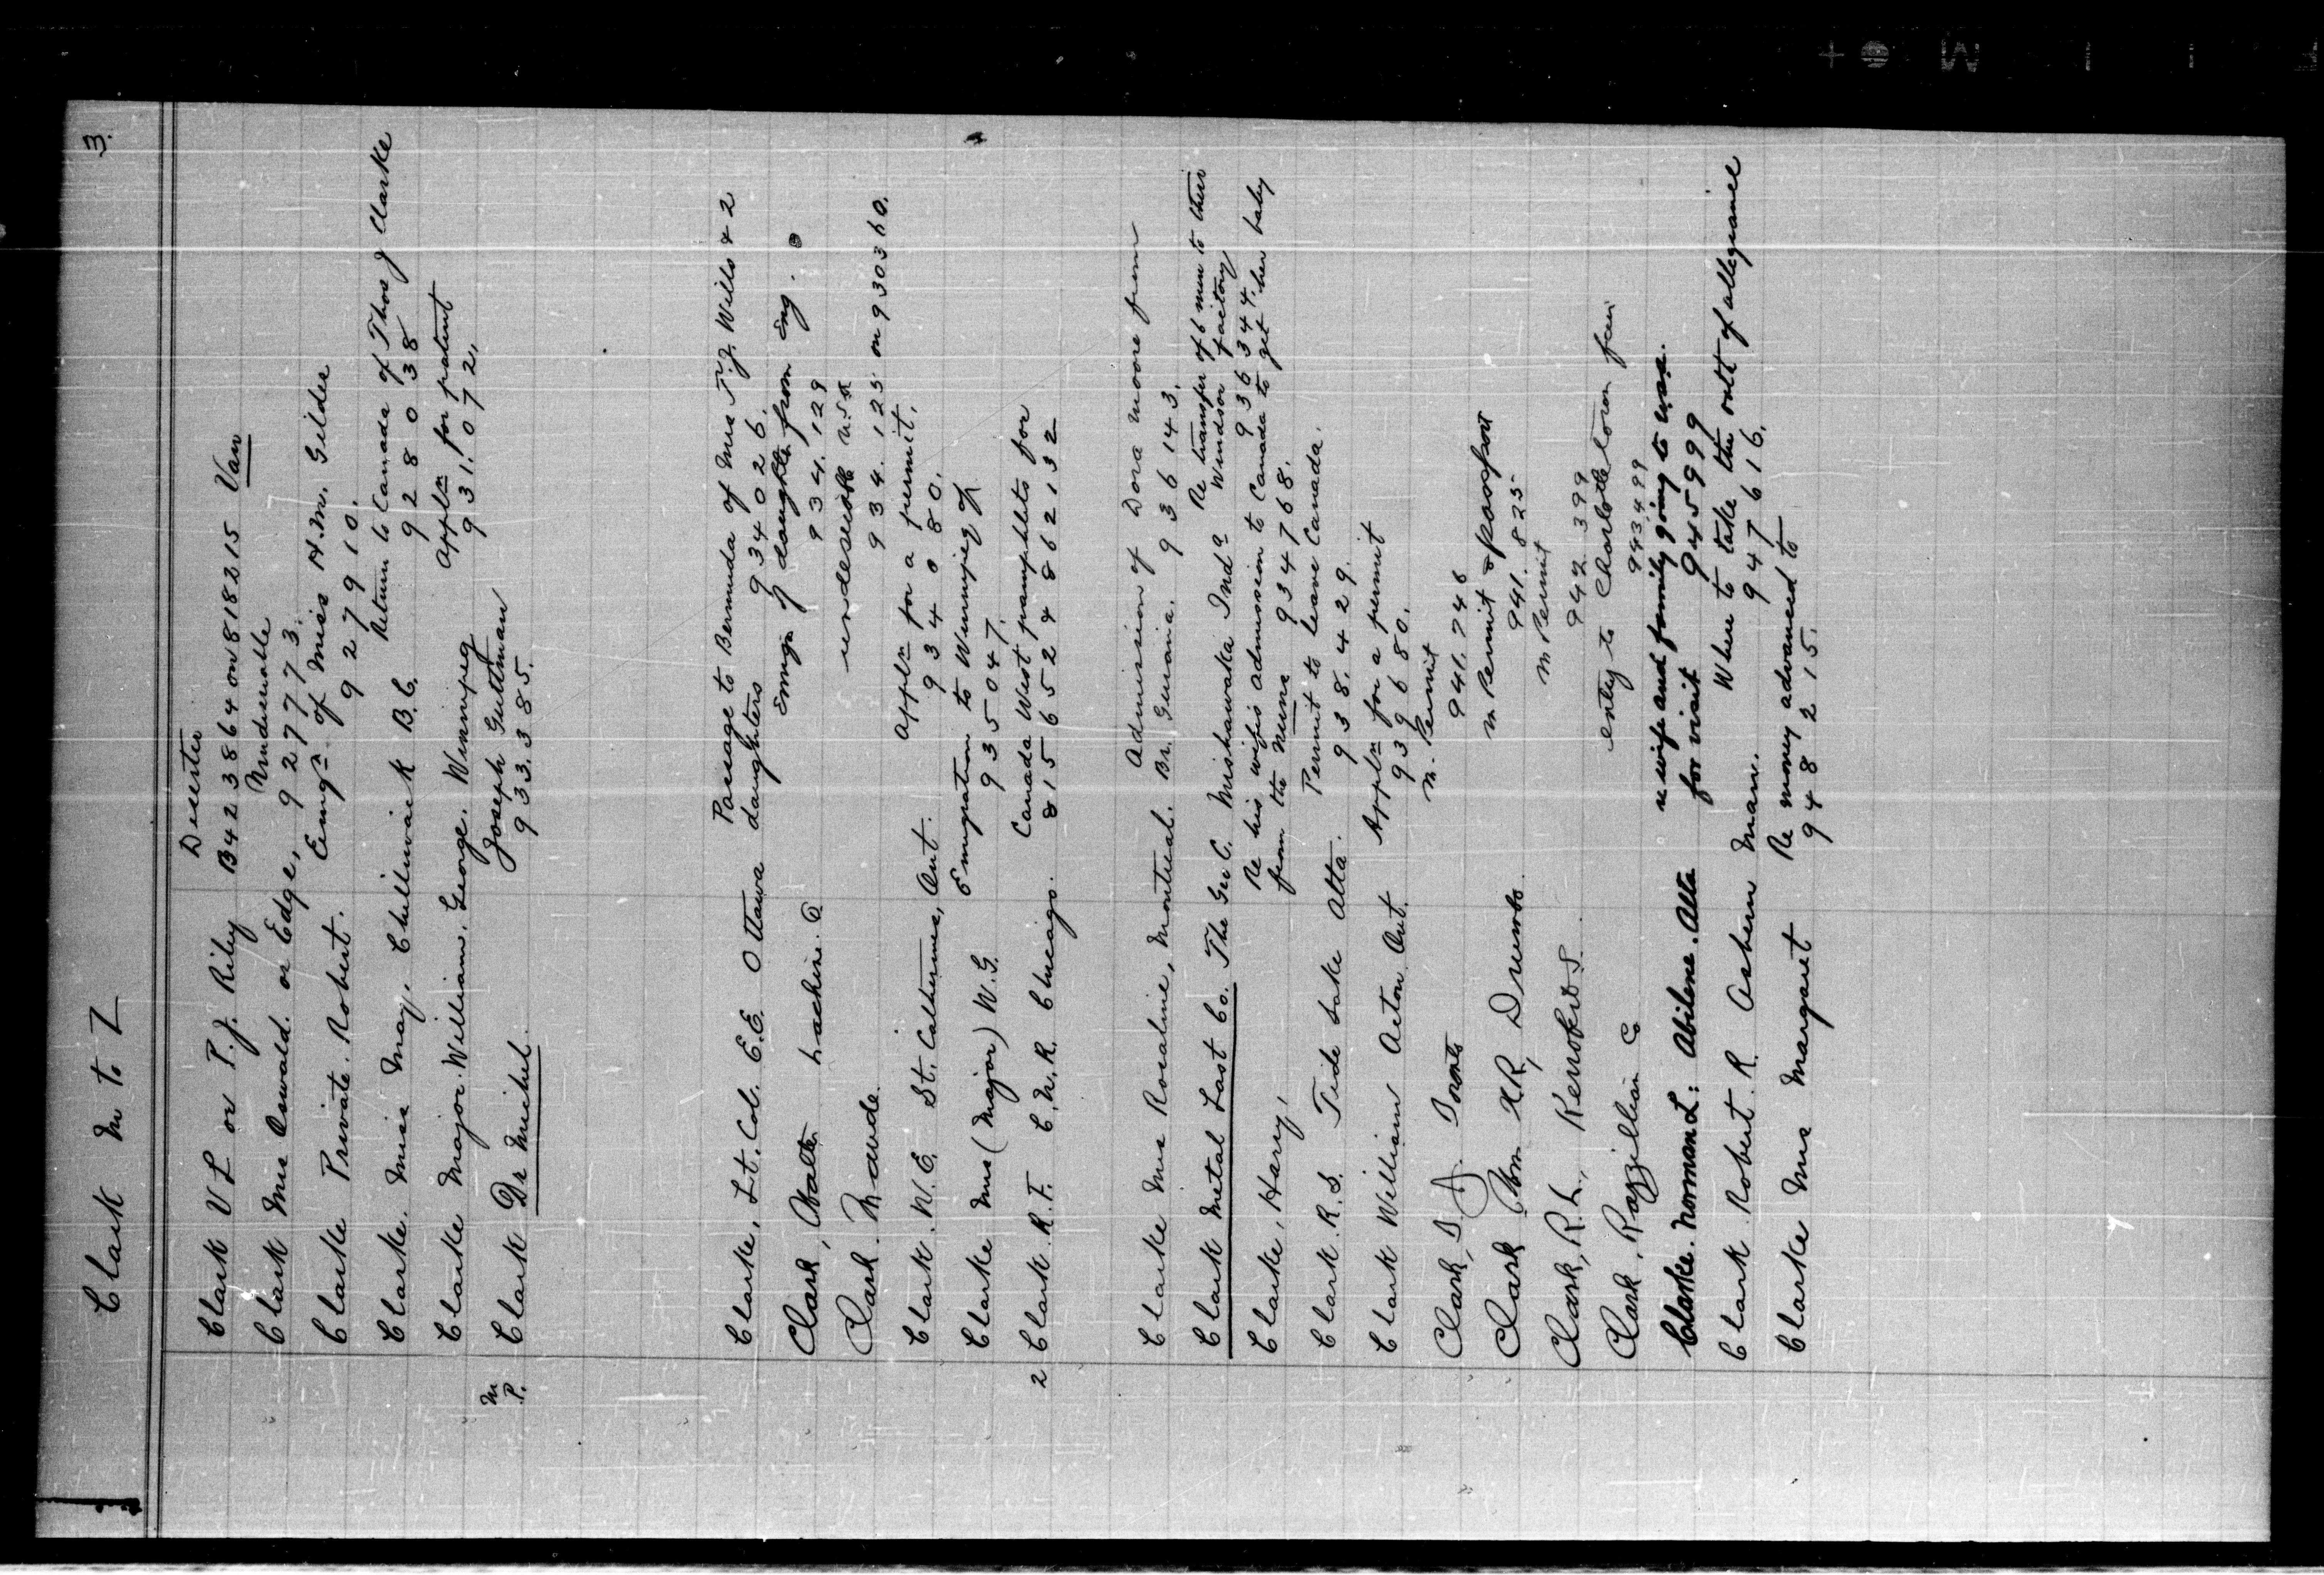 Clark M to Z
3.
Deserter
Clark V L or P. J. Riley B423864 on 818215 Van
Undesirable
Clark Mrs Oswald. or Edge, 927773.
Emign of Miss H. M. Gilder
Clarke Private. Robert. 927910.
Return to Canada of Thos J Clarke
Clarke. Miss May. Chilliwack B.C. 928038
Appln for patent
Clarke Major. William. George. Winnipeg 931.072.
Joseph Guttman
M P. Clark Dr Michel. 933.385.
Passage to Bermuda of Mrs T. J. Wills & 2
Clarke, Lt. Col. E.E. Ottawa daughters 934026.
Emign of daughter from Eng.
Clark, Walter Lachine. Q 934.129
undesirable USA
Clark. Maude. 934.125 on 930360.
Appln for a permit.
Clark. W.E. St. Catherines, Ont. 934080.
Emigration to Winnipeg of
Clarke Mrs (Major) W. G. 935047.
Canada West pamphlets for
2 Clark. R. T. C. N. R. Chicago. 8156524 862132
Admission of Dora Moore from
Clarke Mrs Rosaline, Montreal. Br. Guiana. 936143.
Re transfer of 6 men to their
Clark Metal Last Co. The Geo C. Mishawaka Inda Windsor factory 936344.
Re his wifes admission to Canada to get her baby
Clarke, Harry, from the Nuns 934768.
Permit to leave Canada.
Clark. R. S. Tide Lake Alta. 938.429.
Appln for a permit
Clark William Acton Ont. 939680.
M. Permit
Clark, S. J. Toronto 941.746
M Permit & passport
Clark Wm H R, Drumbo. 941.825
M Permit
Clark, R. L., 942 399
entry to Charlottetown from
Clark. C 943499
re wife and family going to USA.
Clarke. Norman L: Abilene. Alta for visit 945999
Where to take the oath of allegiance
Clark Robert. R. Ashern Mann. 947616.
Re money advanced to
Clarke Mrs Margaret 948215.